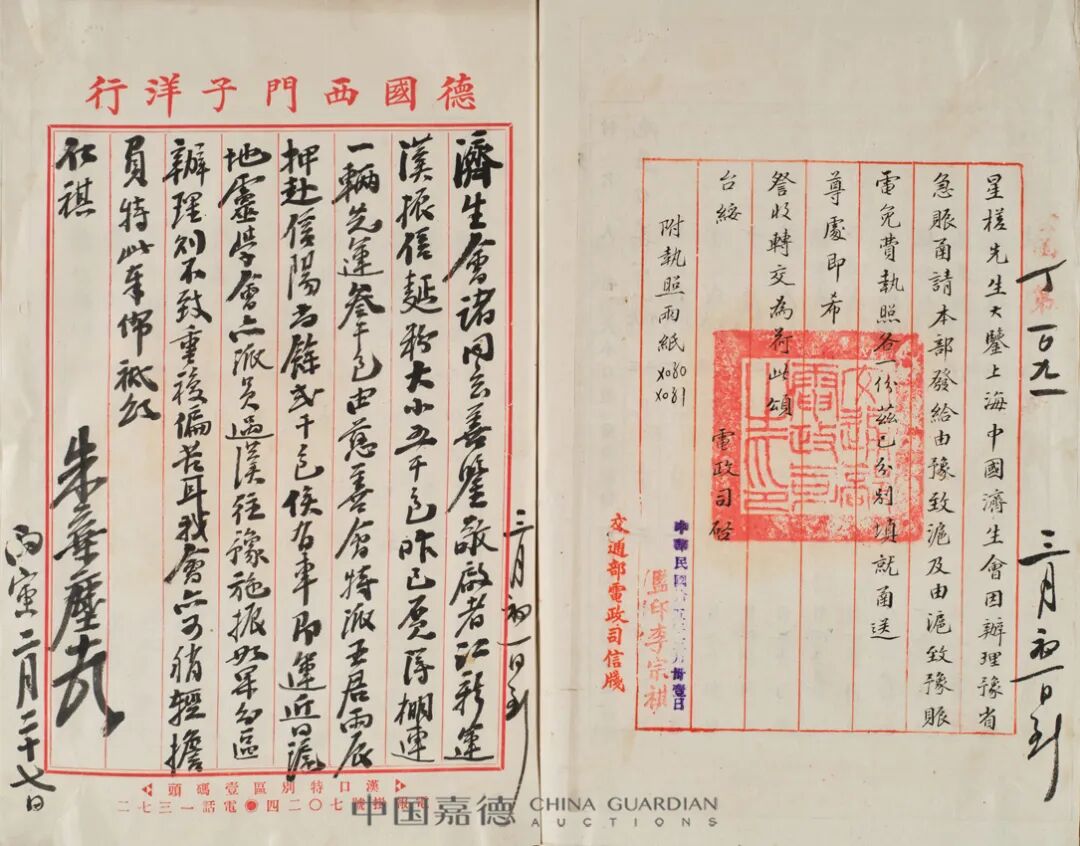 星槎先生大鑒上海中國濟生會因辦理豫省
急賬函請本部發給由豫致滬及由滬致豫賬
電免費執照各一份茲已分別填就函送
尊處即希
詧收轉交為荷此頌
台綏
電政司啓
附執照兩紙
X080
X081
中華民國
月卅壹日
監印李宗祺
交通部電政司信牋
丁
三月初一日到
德國西門子洋行
濟生會諸同志善鑒敬啟者江新運
漢振信麵粉大小五千包昨已覓得棚連
一輛先運叁千包由慈善會特派王君雨辰
押赴信陽尚餘弍千包俟有車即運近日滬
地靈學會亦派員過漢往豫施振如果分區
辦理則不致重複偏苦耳我會亦可稍輕擔
員特此奉佈祗頌
社祺
朱華塵
丙寅二月二十七日
三月初一日到
漢口特別區壹碼頭
電報掛號七〇二四●電話一三七二
中国嘉德 CHINA GUARDIAN
AUCTIONS